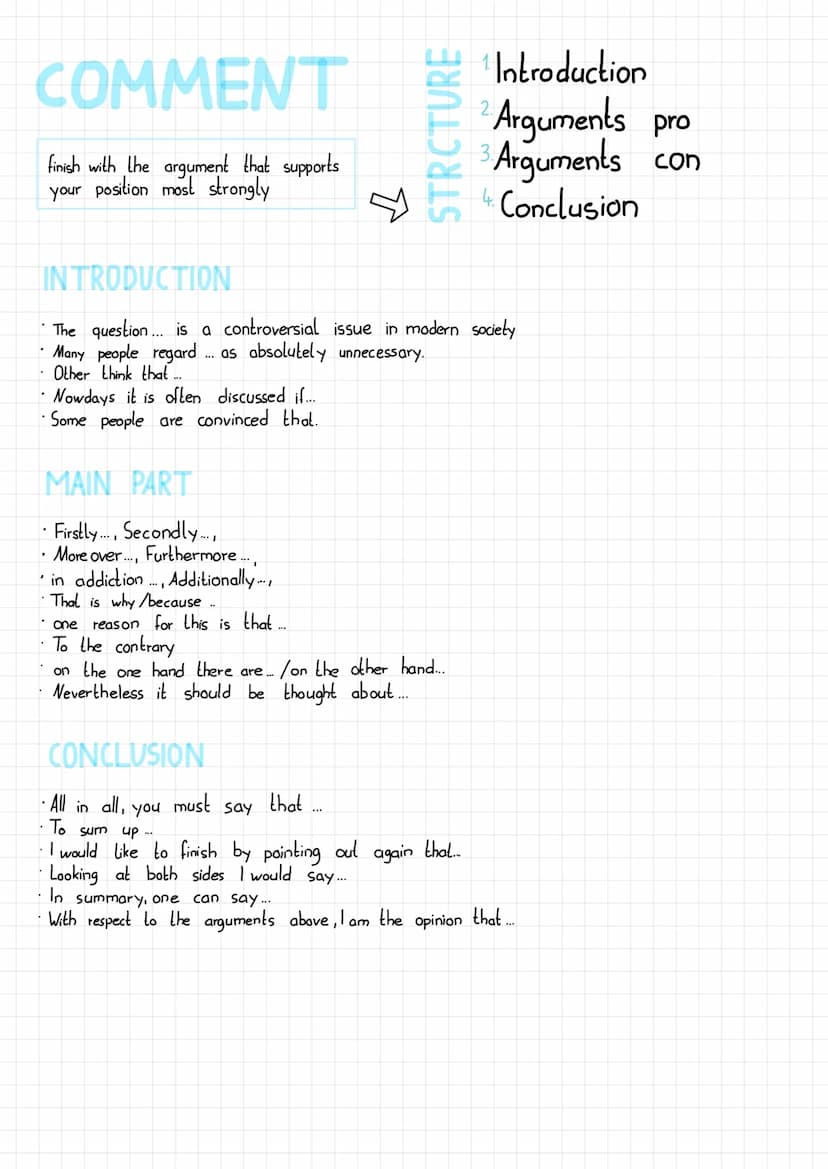 COMMENT
finish with the argument that supports
your position most strongly
STRCTURE
1. Introduction
2. Arguments pro
3. Arguments con
4. Conclusion
INTRODUCTION
· The question... is a controversial issue in modern society
· Many people regard ... as absolutely unnecessary.
· Other think that ...
· Nowdays it is often discussed if...
· Some people are convinced that.
MAIN PART
· Firstly..., Secondly...,
· More over..., Furthermore...,
· in addiction ..., Additionally...,
· That is why/because ..
· one reason for this is that ...
· To the contrary
· on the one hand there are... /on the other hand...
· Nevertheless it should be thought about ...
CONCLUSION
· All in all, you must say that ...
· To sum up ...
· I would like to finish by pointing out again that...
· Looking at both sides I would say...
· In summary, one can say...
· With respect to the arguments above, I am the opinion that ...